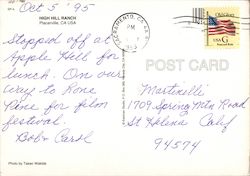 Oct 5 '95
HIGH HILL RANCH
Placerville, CA USA
Stopped off at
Apple Hill for
lunch. On our
way to Lone
Pine for film
festival.
Bob & Carol
Photo by Taiken Wakida
SACRAMENTO, CA
PM
1995
Old Glory
USA G
POST CARD
Martinelli
1709 Spring Mtn Road
St Helena Calif
94574